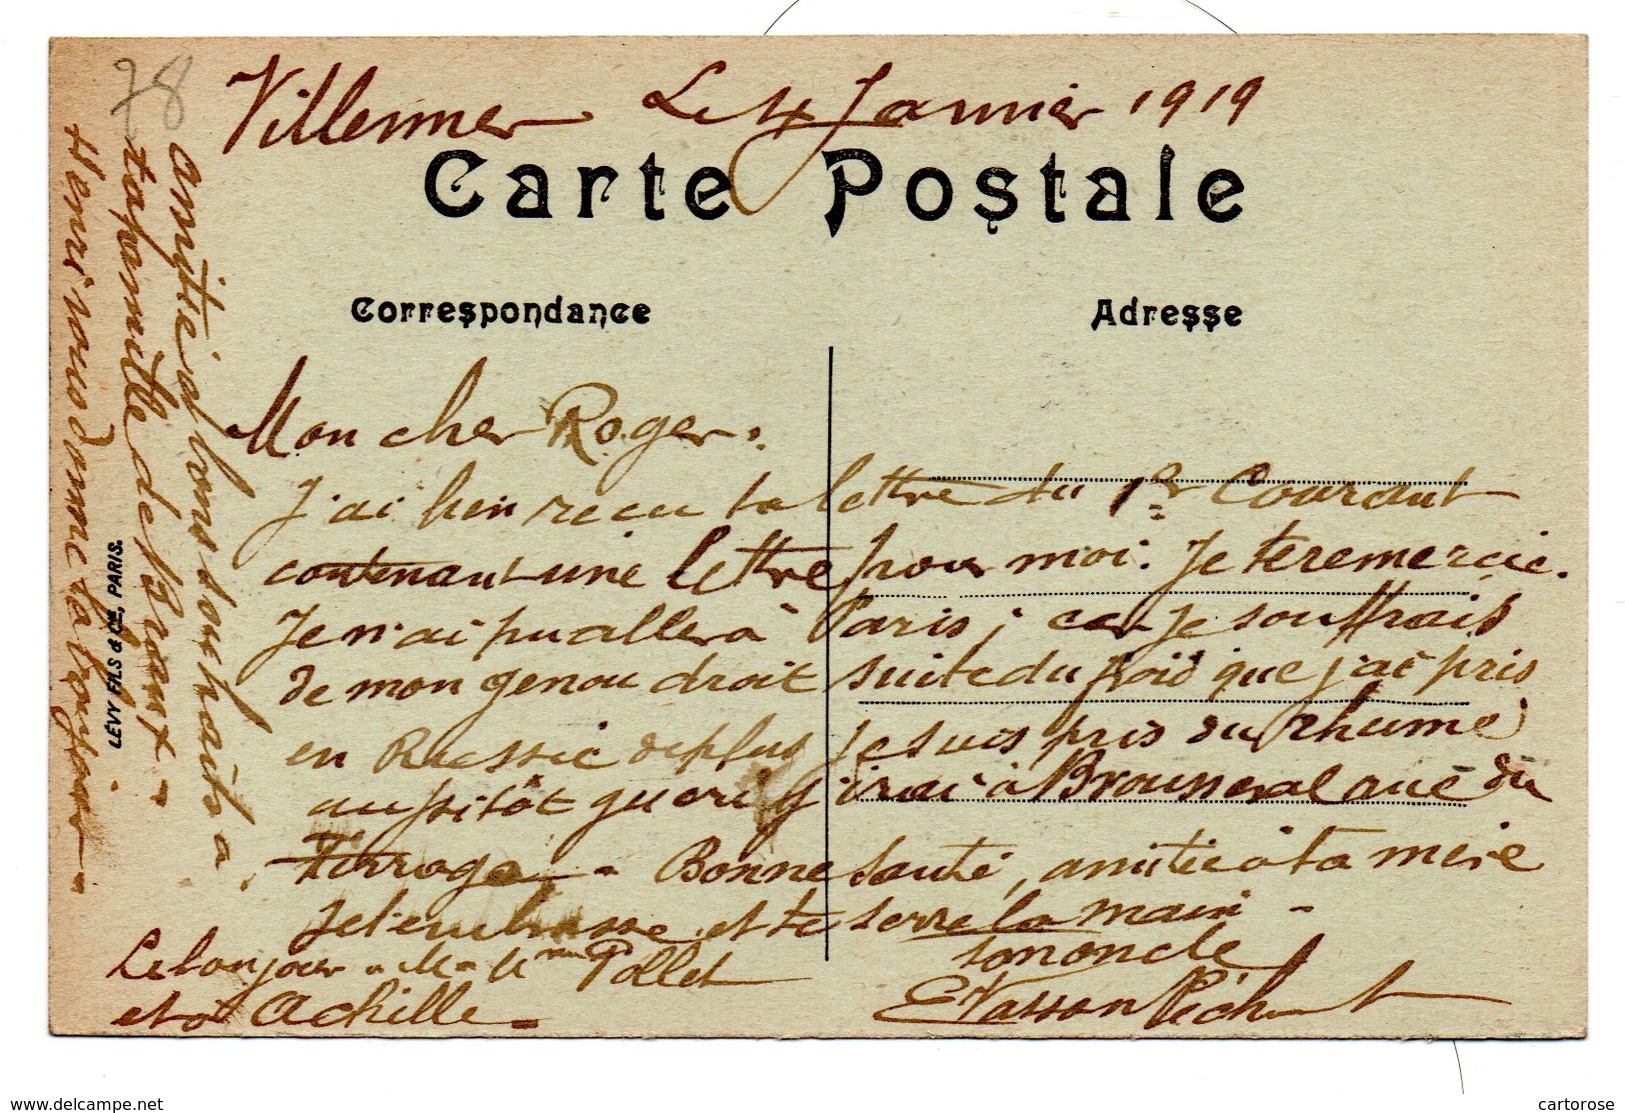 78
Villemer Le 4 Janvier 1919
Carte Postale
Correspondance
Adresse
Mon cher Roger.
J'ai bien recu ta lettre du 1er Courant
contenant une lettre pour moi. Je te remercie.
Je n'ai pu aller à Paris, car je souffrais
de mon genou droit suite du froid que j'ai pris
en Russie deplus je suis pris du rhume
aussitôt gueri j'irai à Brousseval avec du
- Bonne santé, amitié à ta mère
Je t'embrasse et te serre la main -
ton oncle
Le bonjour a M. & Mme Pollet
et a Achille
amitié & bons souhaits a
ta famille de Briant -
Henri vous donne le bonjour -
LÉVY FILS & Cie, PARIS.
www.delcampe.net
cartorose